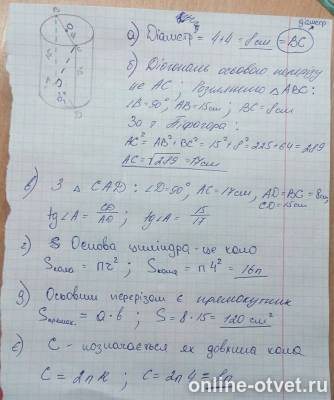 діаметр
а) Діаметр = 4+4 = 8см = BC
б) Діагональ осьового перерізу
це AC; Розглянемо △ABC:
∠B=90°, AB=15см; BC=8см
За т. Піфагора:
AC² = AB² + BC² = 15² + 8² = 225 + 64 = 289
AC = √289 = 17см
в) З △CAD: ∠D=90°, AC=17см, AD=BC=8см,
CD=15см
tg∠A = CD/AD; tg∠A = 15/17
г) Основа циліндра - це коло
Sкола = πr²; Sкола = π4² = 16π
д) Осьовим перерізом є прямокутник
Sпрямок. = a·b; S = 8·15 = 120 см²
є) C - позначається як довжина кола
C = 2πR; C = 2π4 = 8π
online-otvet.ru